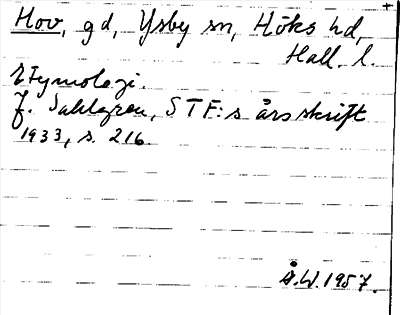 Hov, gd, Ysby sn, Höks hd,
Hall. l.
Etymologi.
J. Sahlgren, STF:s årsskrift
1933, s. 216.
Å.W. 1957.